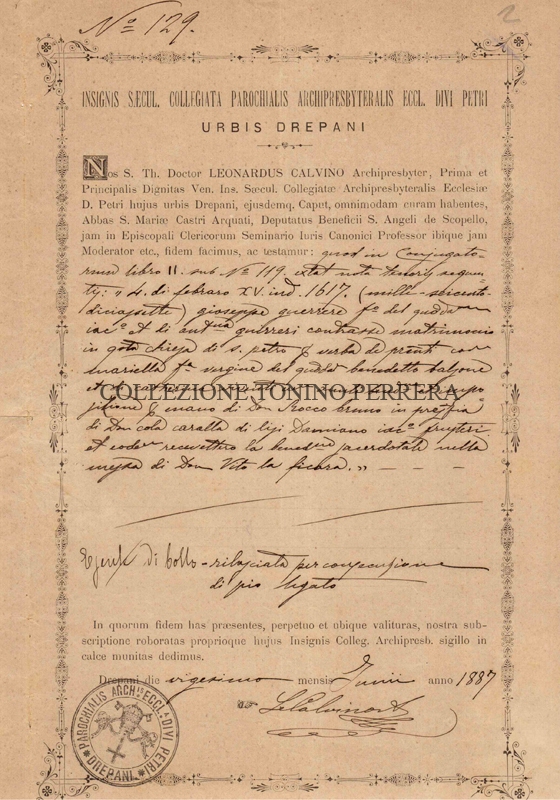 No 129.
2
INSIGNIS SÆCUL. COLLEGIATA PAROCHIALIS ARCHIPRESBYTERALIS ECCL. DIVI PETRI
URBIS DREPANI
Nos S. Th. Doctor LEONARDUS CALVINO Archipresbyter, Prima et
Principalis Dignitas Ven. Ins. Sæcul. Collegiatæ Archipresbyteralis Ecclesiæ
D. Petri hujus urbis Drepani, ejusdemq. Caput, omnimodam curam habentes,
Abbas S. Mariæ Castri Arquati, Deputatus Beneficii S. Angeli de Scopello,
jam in Episcopali Clericorum Seminario Iuris Canonici Professor ibique jam
Moderator etc., fidem facimus, ac testamur: quod in Conjugato-
rum libro 11. sub No 119. extat nota tenoris sequen-
tis: " 4. di febraro XV. ind. 1617. (mille seicento
diciasette) gioseppe guerrere
iaco et di guerreri contrasse matrimonio
in chiesa di S. petro verba de
mariella vergine del benedetto
COLLEZIONE TONINO PERRERA
mano di Don Rocco bruno in
di Don cola caralla di Damiano iaco
et la sacerdotale nella
di Don Vito la ficara. "
di bollo - rilasciata per
di pio legato
In quorum fidem has præsentes, perpetuo et ubique valituras, nostra sub-
scriptione roboratas proprioque hujus Insignis Colleg. Archipresb. sigillo in
calce munitas dedimus.
Drepani die vigesimo mensis Junii anno 1887
PAROCHIALIS ARCH. ECCL. DIVI PETRI
DREPANI